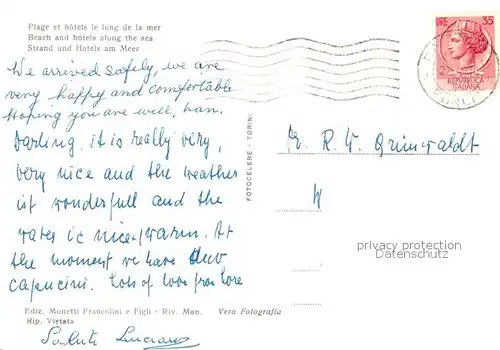 Plage et hôtels le long de la mer
Beach and hôtels along the sea
Strand und Hotels am Meer
We arrived safely, we are
very happy and comfortable
Hoping you are well, han.
Darling, it is really very,
very nice and the weather
ist wonderfull and the
water is nice + warm. At
the moment we have duo
capucini. Lots of love from Lore
Ediz. Monetti Francolini e Figli - Riv. Mon. Vera Fotografia
Rip. Vietata
Saluti Luciano
FOTOCELERE - TORINO
LIRE 35
REPVBBLICA
ITALIANA
FORLI
R. W. Grünwaldt
W
privacy protection
Datenschutz